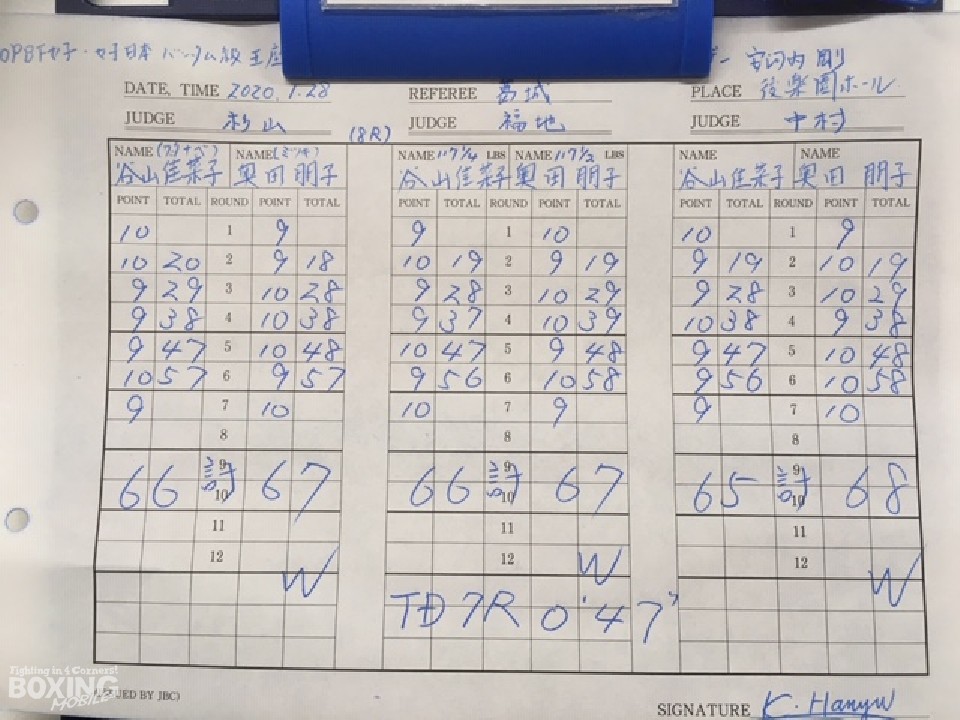 OPBF女子・女子日本バンタム級王座
安河内 剛
DATE, TIME 2020, 1.28 REFEREE 葛城 PLACE 後楽園ホール
JUDGE 杉山 (8R) JUDGE 福地 JUDGE 中村
NAME (ワタナベ) NAME (ミツキ) NAME 117 1/4 LBS NAME 117 1/2 LBS NAME NAME
谷山佳菜子 奥田朋子 谷山佳菜子 奥田朋子 谷山佳菜子 奥田朋子
POINT TOTAL ROUND POINT TOTAL POINT TOTAL ROUND POINT TOTAL POINT TOTAL ROUND POINT TOTAL
10 1 9 9 1 10 10 1 9
10 20 2 9 18 10 19 2 9 19 9 19 2 10 19
9 29 3 10 28 9 28 3 10 29 9 28 3 10 29
9 38 4 10 38 9 37 4 10 39 10 38 4 9 38
9 47 5 10 48 10 47 5 9 48 9 47 5 10 48
10 57 6 9 57 9 56 6 10 58 9 56 6 10 58
9 7 10 10 7 9 9 7 10
8 8 8
9 9 9
66 計 67 66 計 67 65 計 68
10 10 10
11 11 11
12 12 12
W W W
TD 7R 0'47"
Fighting in 4 Corners!
BOXING
MOBILE
(ISSUED BY JBC)
SIGNATURE K. Hanyu